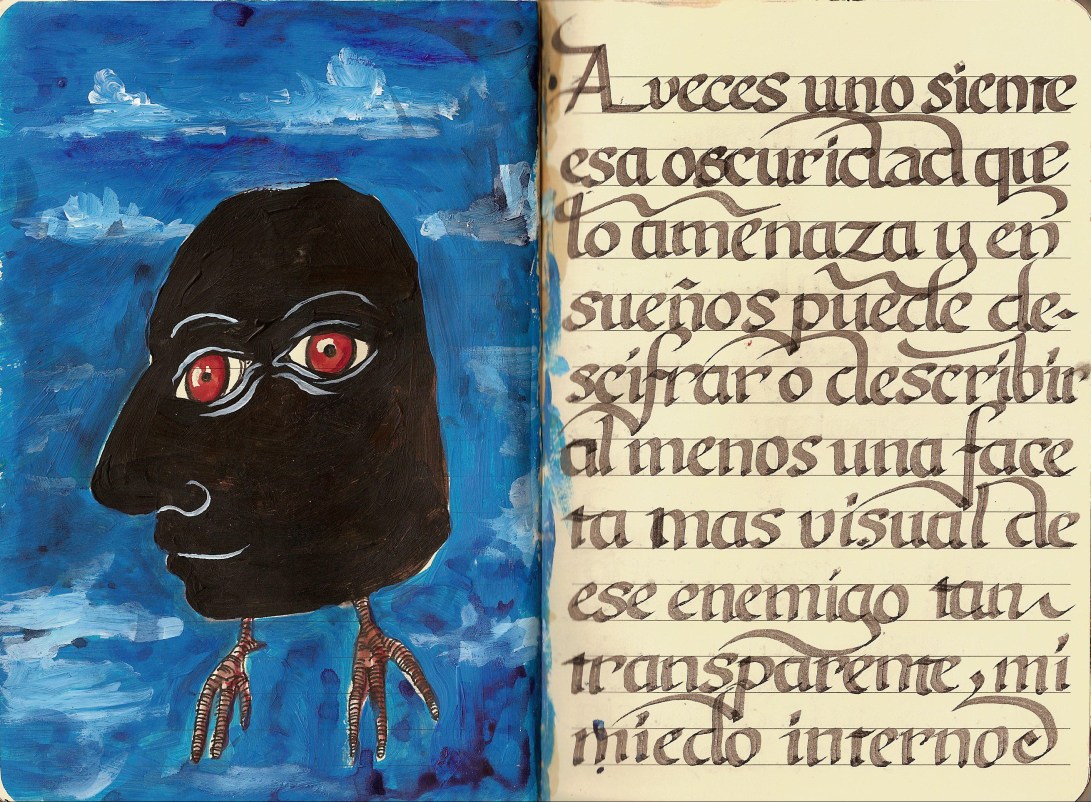 A veces uno siente
esa oscuridad que
lo amenaza y en
sueños puede de-
scifrar o describir
al menos una face
ta mas visual de
ese enemigo tan
transparente, mi
miedo interno